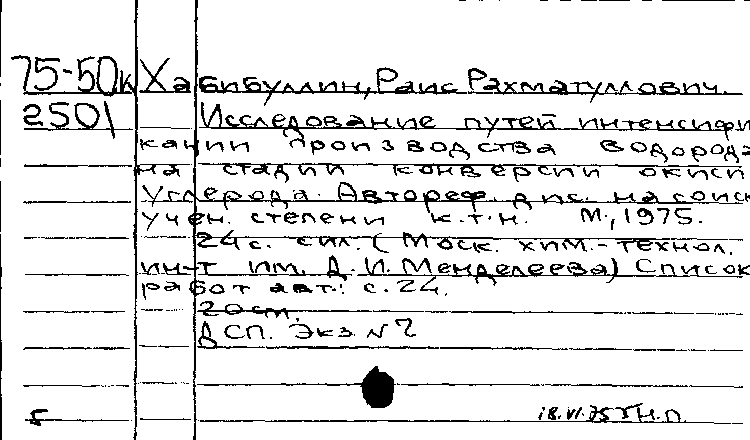 75-50к Хабибуллин, Раис Рахматуллович.
2501 Исследование путей интенсифи
кации производства водорода
на стадии конверсии окиси
углерода. Автореф. дис. на соиск
учен. степени к.т.н. М., 1975.
24 с. с ил. (Моск. хим.-технол.
ин-т им. Д.И. Менделеева) Список
работ авт.: с. 24.
20 см.
ДСП. Экз N 2
18.VI.75